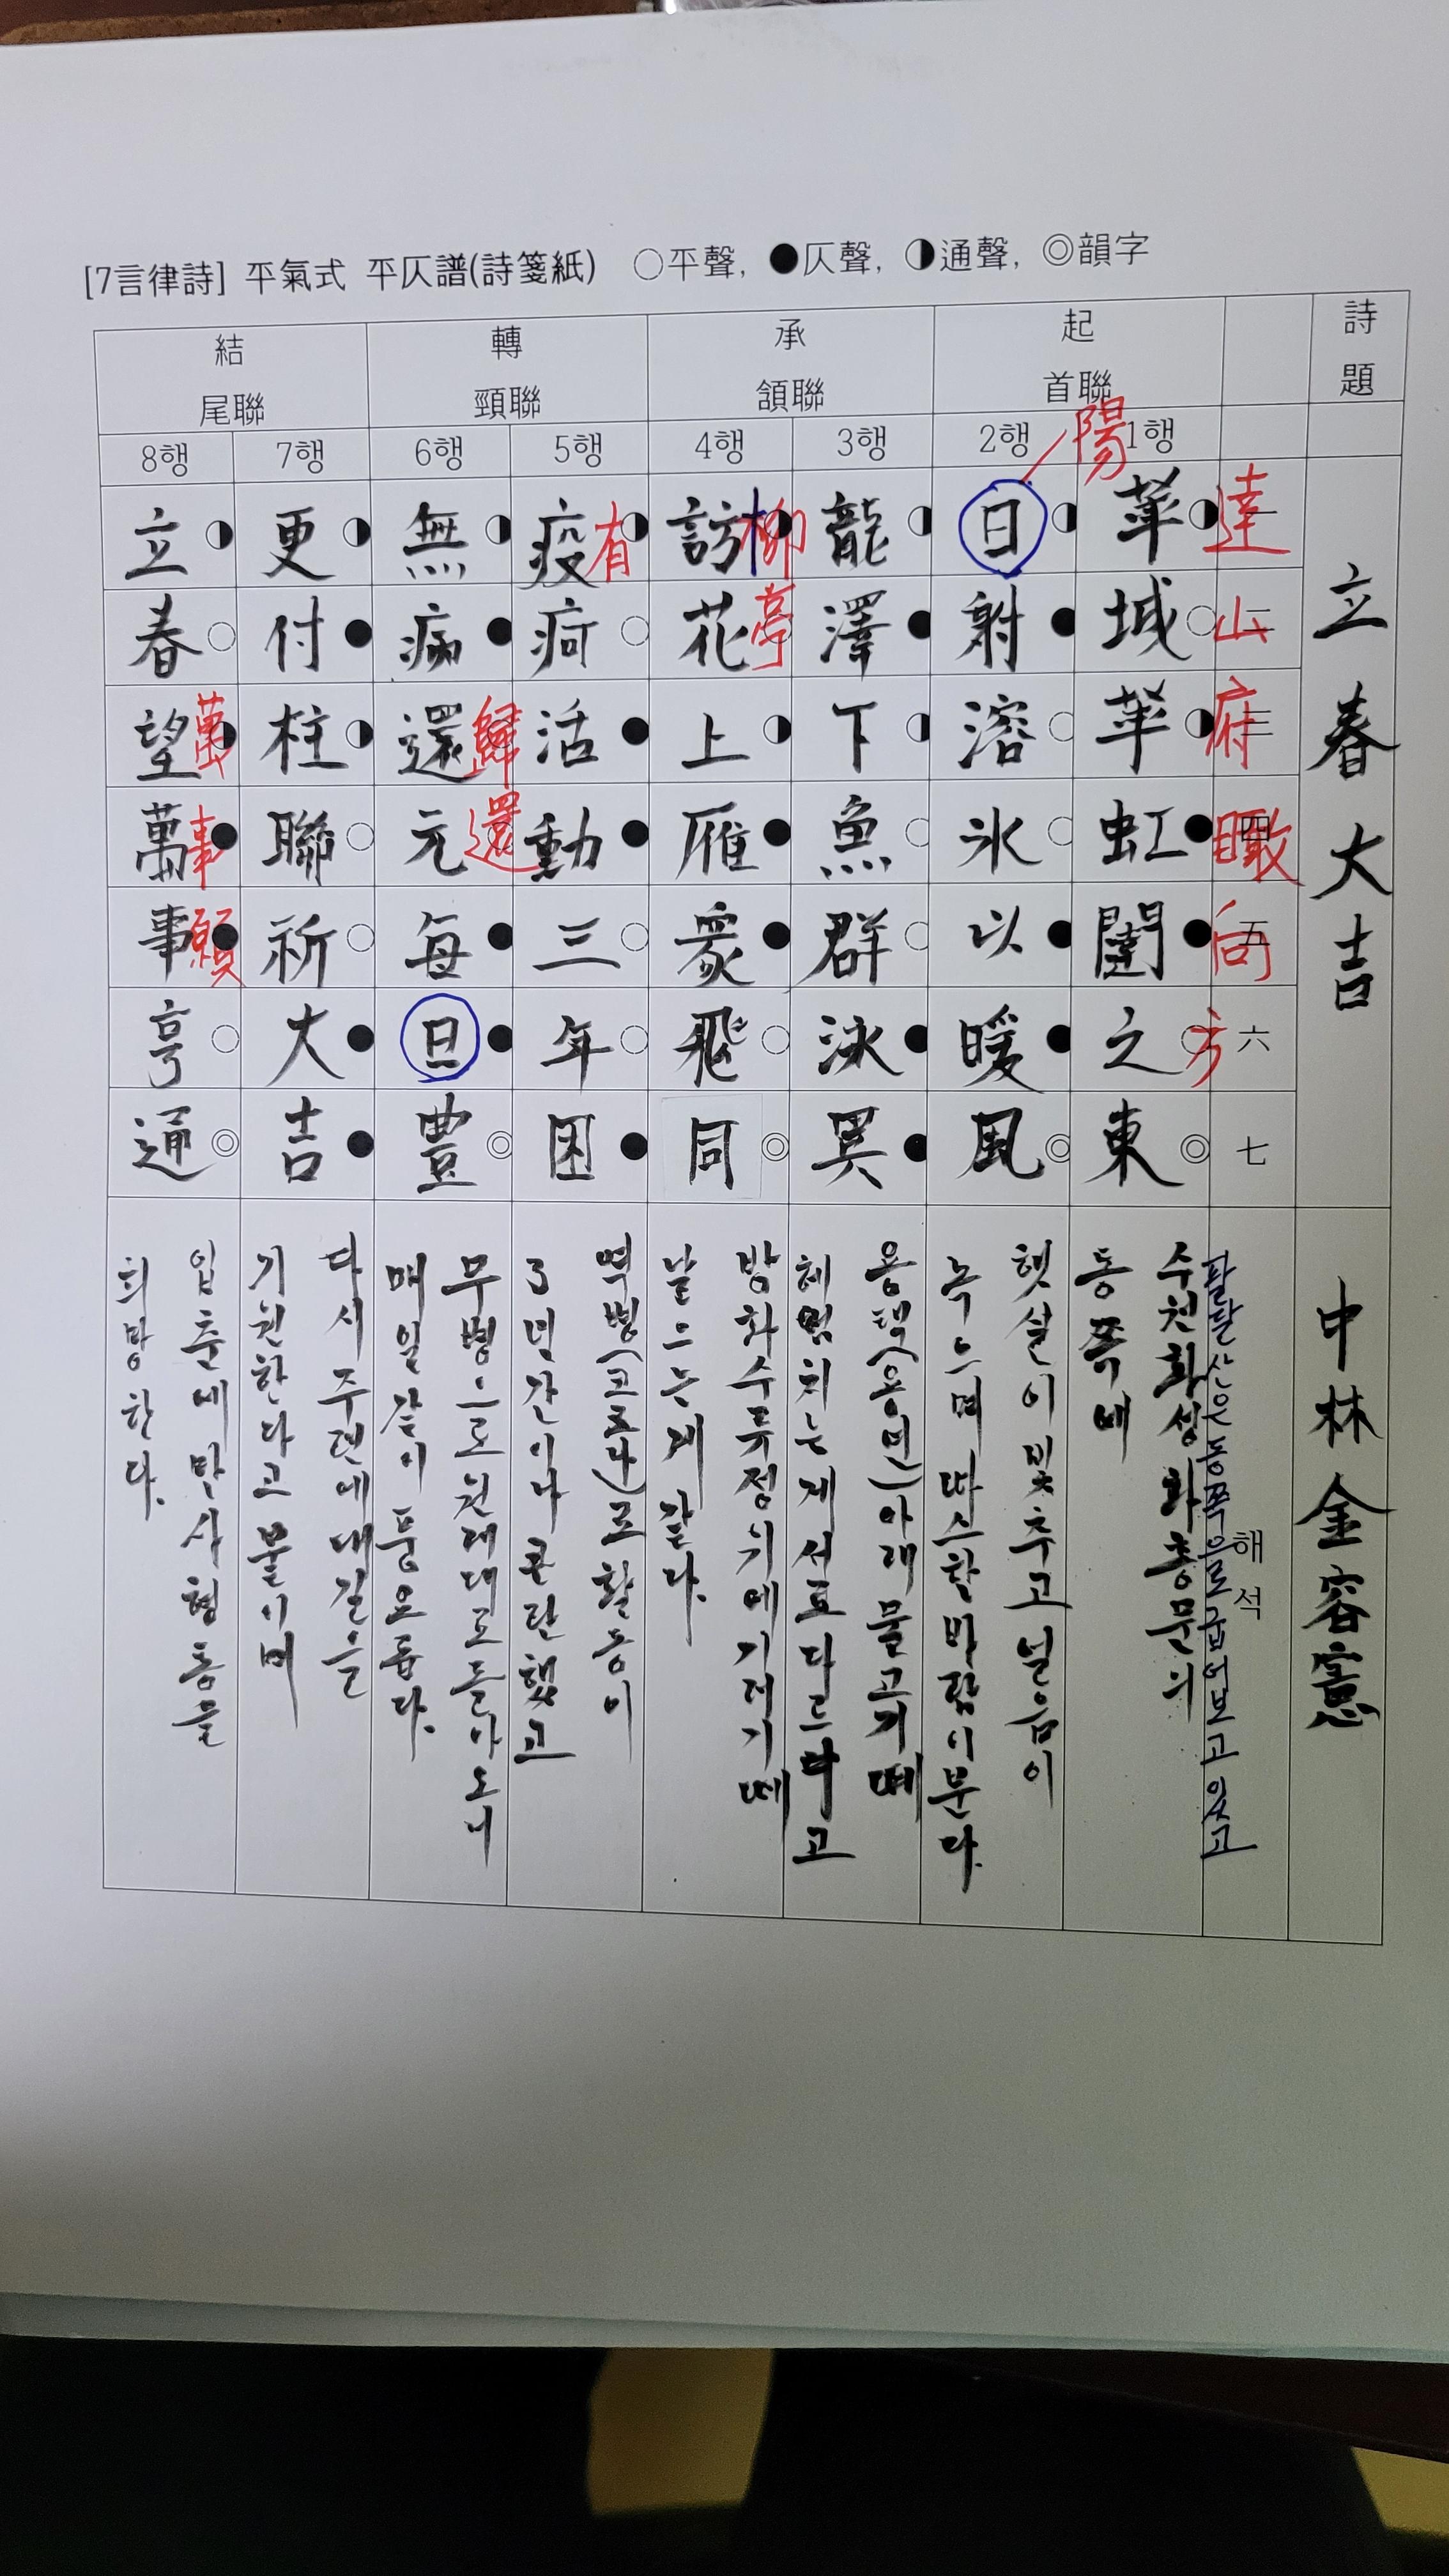 [7言律詩] 平氣式 平仄譜(詩箋紙) ○平聲, ●仄聲, ◑通聲, ◎韻字
詩題
立春大吉
中林 金容憲
一
二
三
四
五
六
七
해석
達山府瞰向方
팔달산은 동쪽으로 굽어보고 있고
起
首聯
1행
華城華虹闥之東
수원화성 화홍문의
동쪽에
2행
陽
日射溶氷以暖風
햇살이 빛추고 널음이
녹으며 따스한 바람이 분다.
承
頷聯
3행
龍澤下魚群泳異
용택(용연)아래 물고기떼
헤엄치는게 서로 다르다고
4행
訪花上雁衆飛同
柳亭
방화수류정위에 기러기떼
날으는게 같다.
轉
頸聯
5행
疫疴活動三年困
有
역병(코로나)로 활동이
3년간이나 곤란했고
6행
無病還元每日豊
歸還
무병으로 원래대로 돌아오니
매일같이 풍요롭다.
結
尾聯
7행
更付柱聯祈大吉
다시 주련에 대길을
기원한다고 붙이며
8행
立春望萬事亨通
萬事願
입춘에 만사형통을
희망한다.